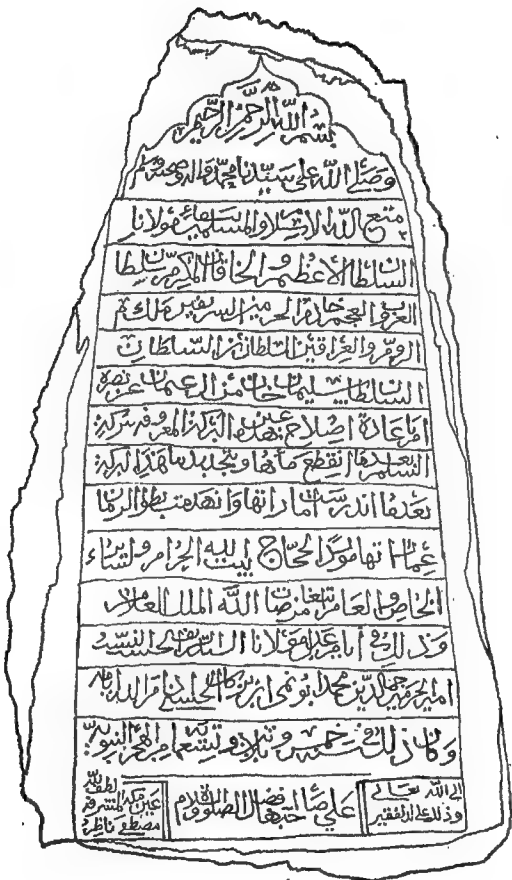 بسم الله الرحمن الرحيم
وصلى الله على سيدنا محمد واله وصحبه وسلم
متع الله الاسلام والمسلمين ببقاء مولانا
السلطان الاعظم والخاقان المكرم سلطان
العرب والعجم خادم الحرمين الشريفين ملك
الروم والعراقين السلطان ابن السلطان
السلطان سليمان خان من ال عثمان عز نصره
امر باعادة اصلاح عين هذه البركة المعروفة ببركة
السلم بعد انقطع ماءها وتجديد هذه البركة
بعدما اندرست اماراتها وانهدمت بطول الزمان
عماراتها مورد الحجاج بيت الله الحرام ولسائر
الخاص والعام مبتغيا مرضات الله الملك العلام
وذلك في ايام مولانا الشريف الحسيب النسيب
امير الحرمين نجم الدين محمد ابو نمي ابن بركات الحسني ادام الله ايامه
وكان ذلك في سنة خمس وثلاثين وتسعمائة من الهجرة النبوية
على صاحبها افضل الصلاة والسلام
الى الله تعالى
وذلك على يد الفقير
لطف الله
عين مكة المشرفة
مصطفى ناظر